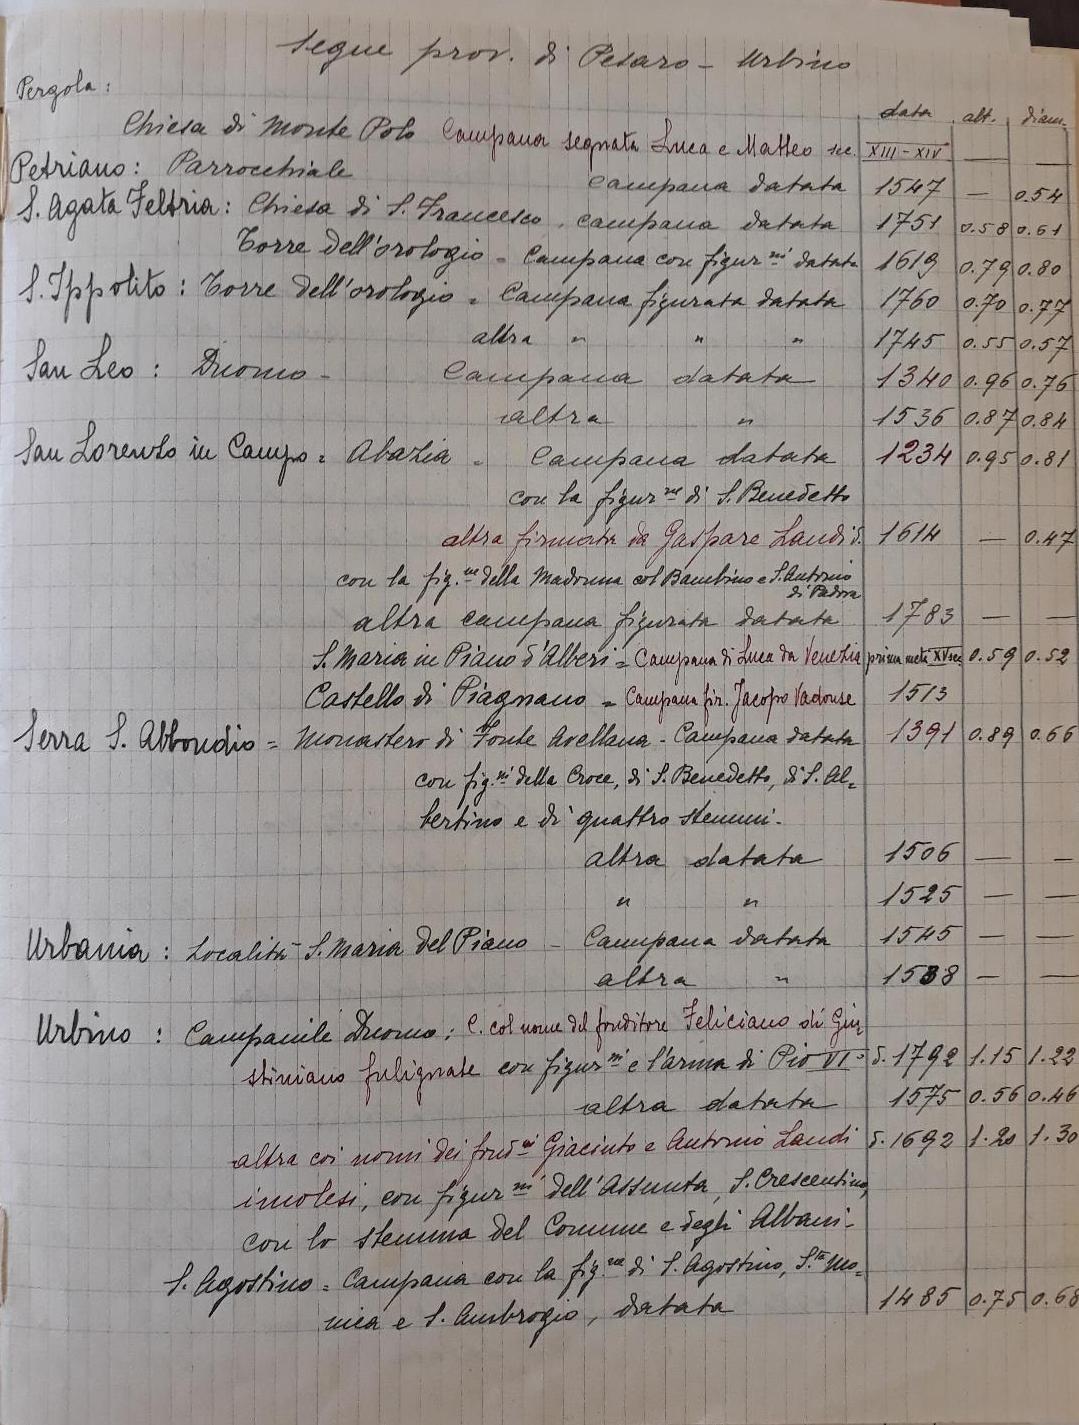 Segue prov. di Pesaro - Urbino
Pergola: data alt. diam.
Chiesa di Monte Polo Campana segnata Luca e Matteo sec. XIII-XIV — —
Petriano: Parrocchiale campana datata 1547 — 0.54
S. Agata Feltria: Chiesa di S. Francesco. campana datata 1751 0.58 0.61
Torre dell'orologio = Campana con figur.ni datata 1619 0.79 0.80
S. Ippolito: Torre dell'orologio = Campana figurata datata 1760 0.70 0.77
altra " " " 1745 0.55 0.57
San Leo: Duomo - Campana datata 1340 0.96 0.76
altra " 1536 0.87 0.84
San Lorenzo in Campo = Abazia = Campana datata 1234 0.95 0.81
con la figur.ne di S. Benedetto
altra firmata da Gaspare Landi d. 1614 — 0.47
con la fig.ne della Madonna col Bambino e S. Antonio
di Padova
altra campana figurata datata 1783 — —
S. Maria in Piano d'Alberi = Campana di Luca da Venezia prima metà XV sec. 0.59 0.52
Castello di Piagnano = Campana fir. Jacopo 1513
Serra S. Abbondio = Monastero di Fonte Avellana - Campana datata 1391 0.89 0.66
con fig.ni della Croce, di S. Benedetto, di S. Al=
bertino e di quattro stemmi.
altra datata 1506 — —
" " 1525 — —
Urbania: Località S. Maria del Piano - Campana datata 1545 — —
altra " —  —
Urbino: Campanile Duomo: C. col nome del fonditore Feliciano di Giu=
stiniano fulignate con figur.ni e l'arma di Pio VI= d. 1792 1.15 1.22
altra datata 1575 0.56 0.46
altra coi nomi dei fond.ri Giacinto e Antonio Landi d. 1692 1.20 1.30
imolesi, con figur.ni dell'Assunta, S. Crescentino,
con lo stemma del Comune e degli Albani.
S. Agostino = Campana con la fig.ne di S. Agostino, S.ta Mo=
nica e S. Ambrogio, datata 1485 0.75 0.68